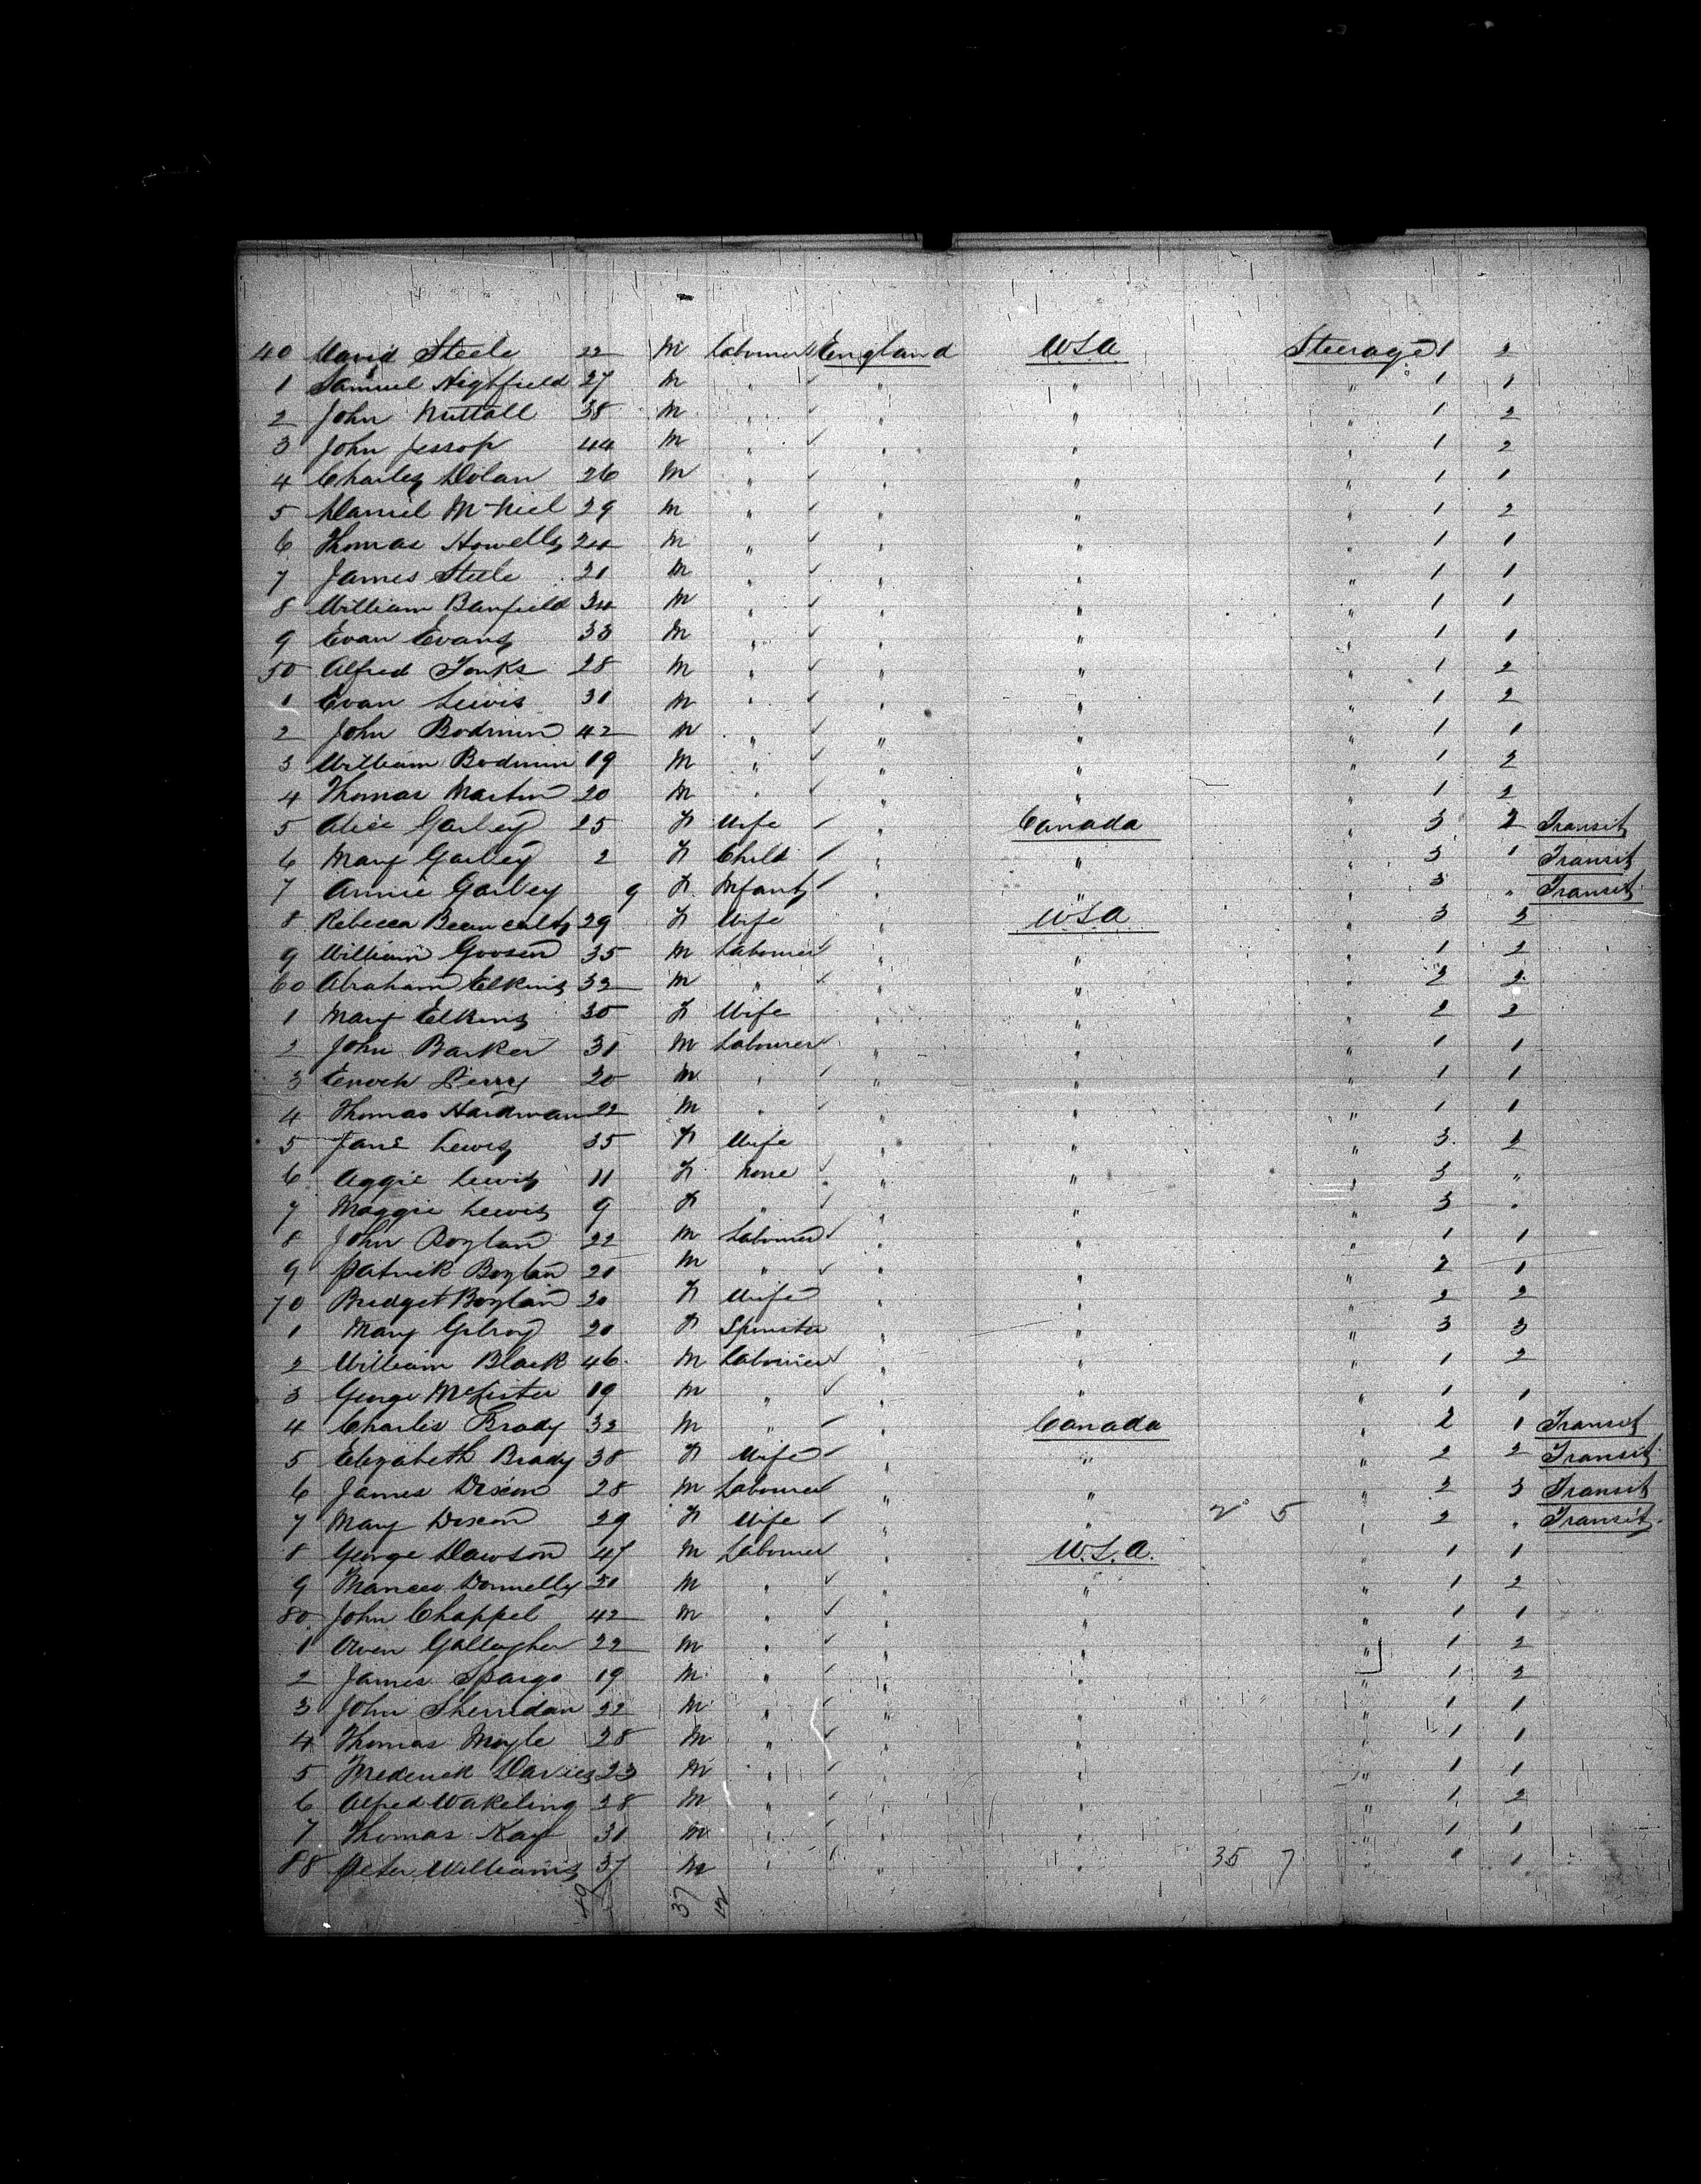 40 David Steele 22 M Labourer England USA Steerage 1 2
1 Samuel Highfield 27 M " " " " 1 1
2 John Nuttall 38 M " " " " 1 2
3 John Jessop 44 M " " " " 1 2
4 Charles Dolan 26 M " " " " 1 1
5 Daniel McNiel 29 M " " " " 1 2
6 Thomas Howells 24 M " " " " 1 1
7 James Steele 21 M " " " " 1 1
8 William Banfield 34 M " " " " 1 1
9 Evan Evans 33 M " " " " 1 1
50 Alfred Tonks 28 M " " " " 1 2
1 Evan Lewis 31 M " " " " 1 2
2 John Bodmin 42 M " " " " 1 1
3 William Bodmin 19 M " " " " 1 2
4 Thomas Martin 20 M " " " " 1 2
5 Alice Garbey 25 F Wife " Canada " 3 2 Transit
6 Mary Garbey 2 F Child " " " 3 1 Transit
7 Annie Garbey 9 F Infant " " " 3 " Transit
8 Rebecca 29 F Wife " USA " 3 2
9 William Gooson 35 M Labourer " " " 1 2
60 Abraham Elkins 32 M " " " " 2 2
1 Mary Elkins 30 F Wife " " " 2 2
2 John Barker 31 M Labourer " " " 1 1
3 Enoch Perry 20 M " " " " 1 1
4 Thomas Hardman 22 M " " " " 1 1
5 Jane Lewis 35 F Wife " " " 3 2
6 Aggie Lewis 11 F None " " " 3 "
7 Maggie Lewis 9 F " " " " 3 "
8 John Boylan 22 M Labourer " " " 1 1
9 Patrick Boylan 21 M " " " " 2 1
70 Bridget Boylan 20 F Wife " " " 2 2
1 Mary Gilroy 20 F Spinster " " " 3 3
2 William Black 46 M Labourer " " " 1 2
3 George McLister 19 M " " " " 1 1
4 Charles Brady 32 M " " Canada " 2 1 Transit
5 Elizabeth Brady 38 F Wife " " " 2 2 Transit
6 James Dixon 28 M Labourer " " " 2 3 Transit
7 Mary Dixon 29 F Wife " " 2 5 " 2 " Transit
8 George Dawson 47 M Labourer " U.S.A. " 1 1
9 Frances Donnelly 21 M " " " " 1 2
80 John Chappel 42 M " " " " 1 1
1 Owen Gallagher 22 M " " " " 1 2
2 James Spargo 19 M " " " " 1 2
3 John Sherridan 22 M " " " " 1 1
4 Thomas Moyle 28 M " " " " 1 1
5 Frederick Davies 23 M " " " " 1 1
6 Alfred Wakeling 28 M " " " " 1 2
7 Thomas Kay 31 M " " " " 1 1
88 Peter Williams 37 M " " " 35 7 " 1 1
49 37 12